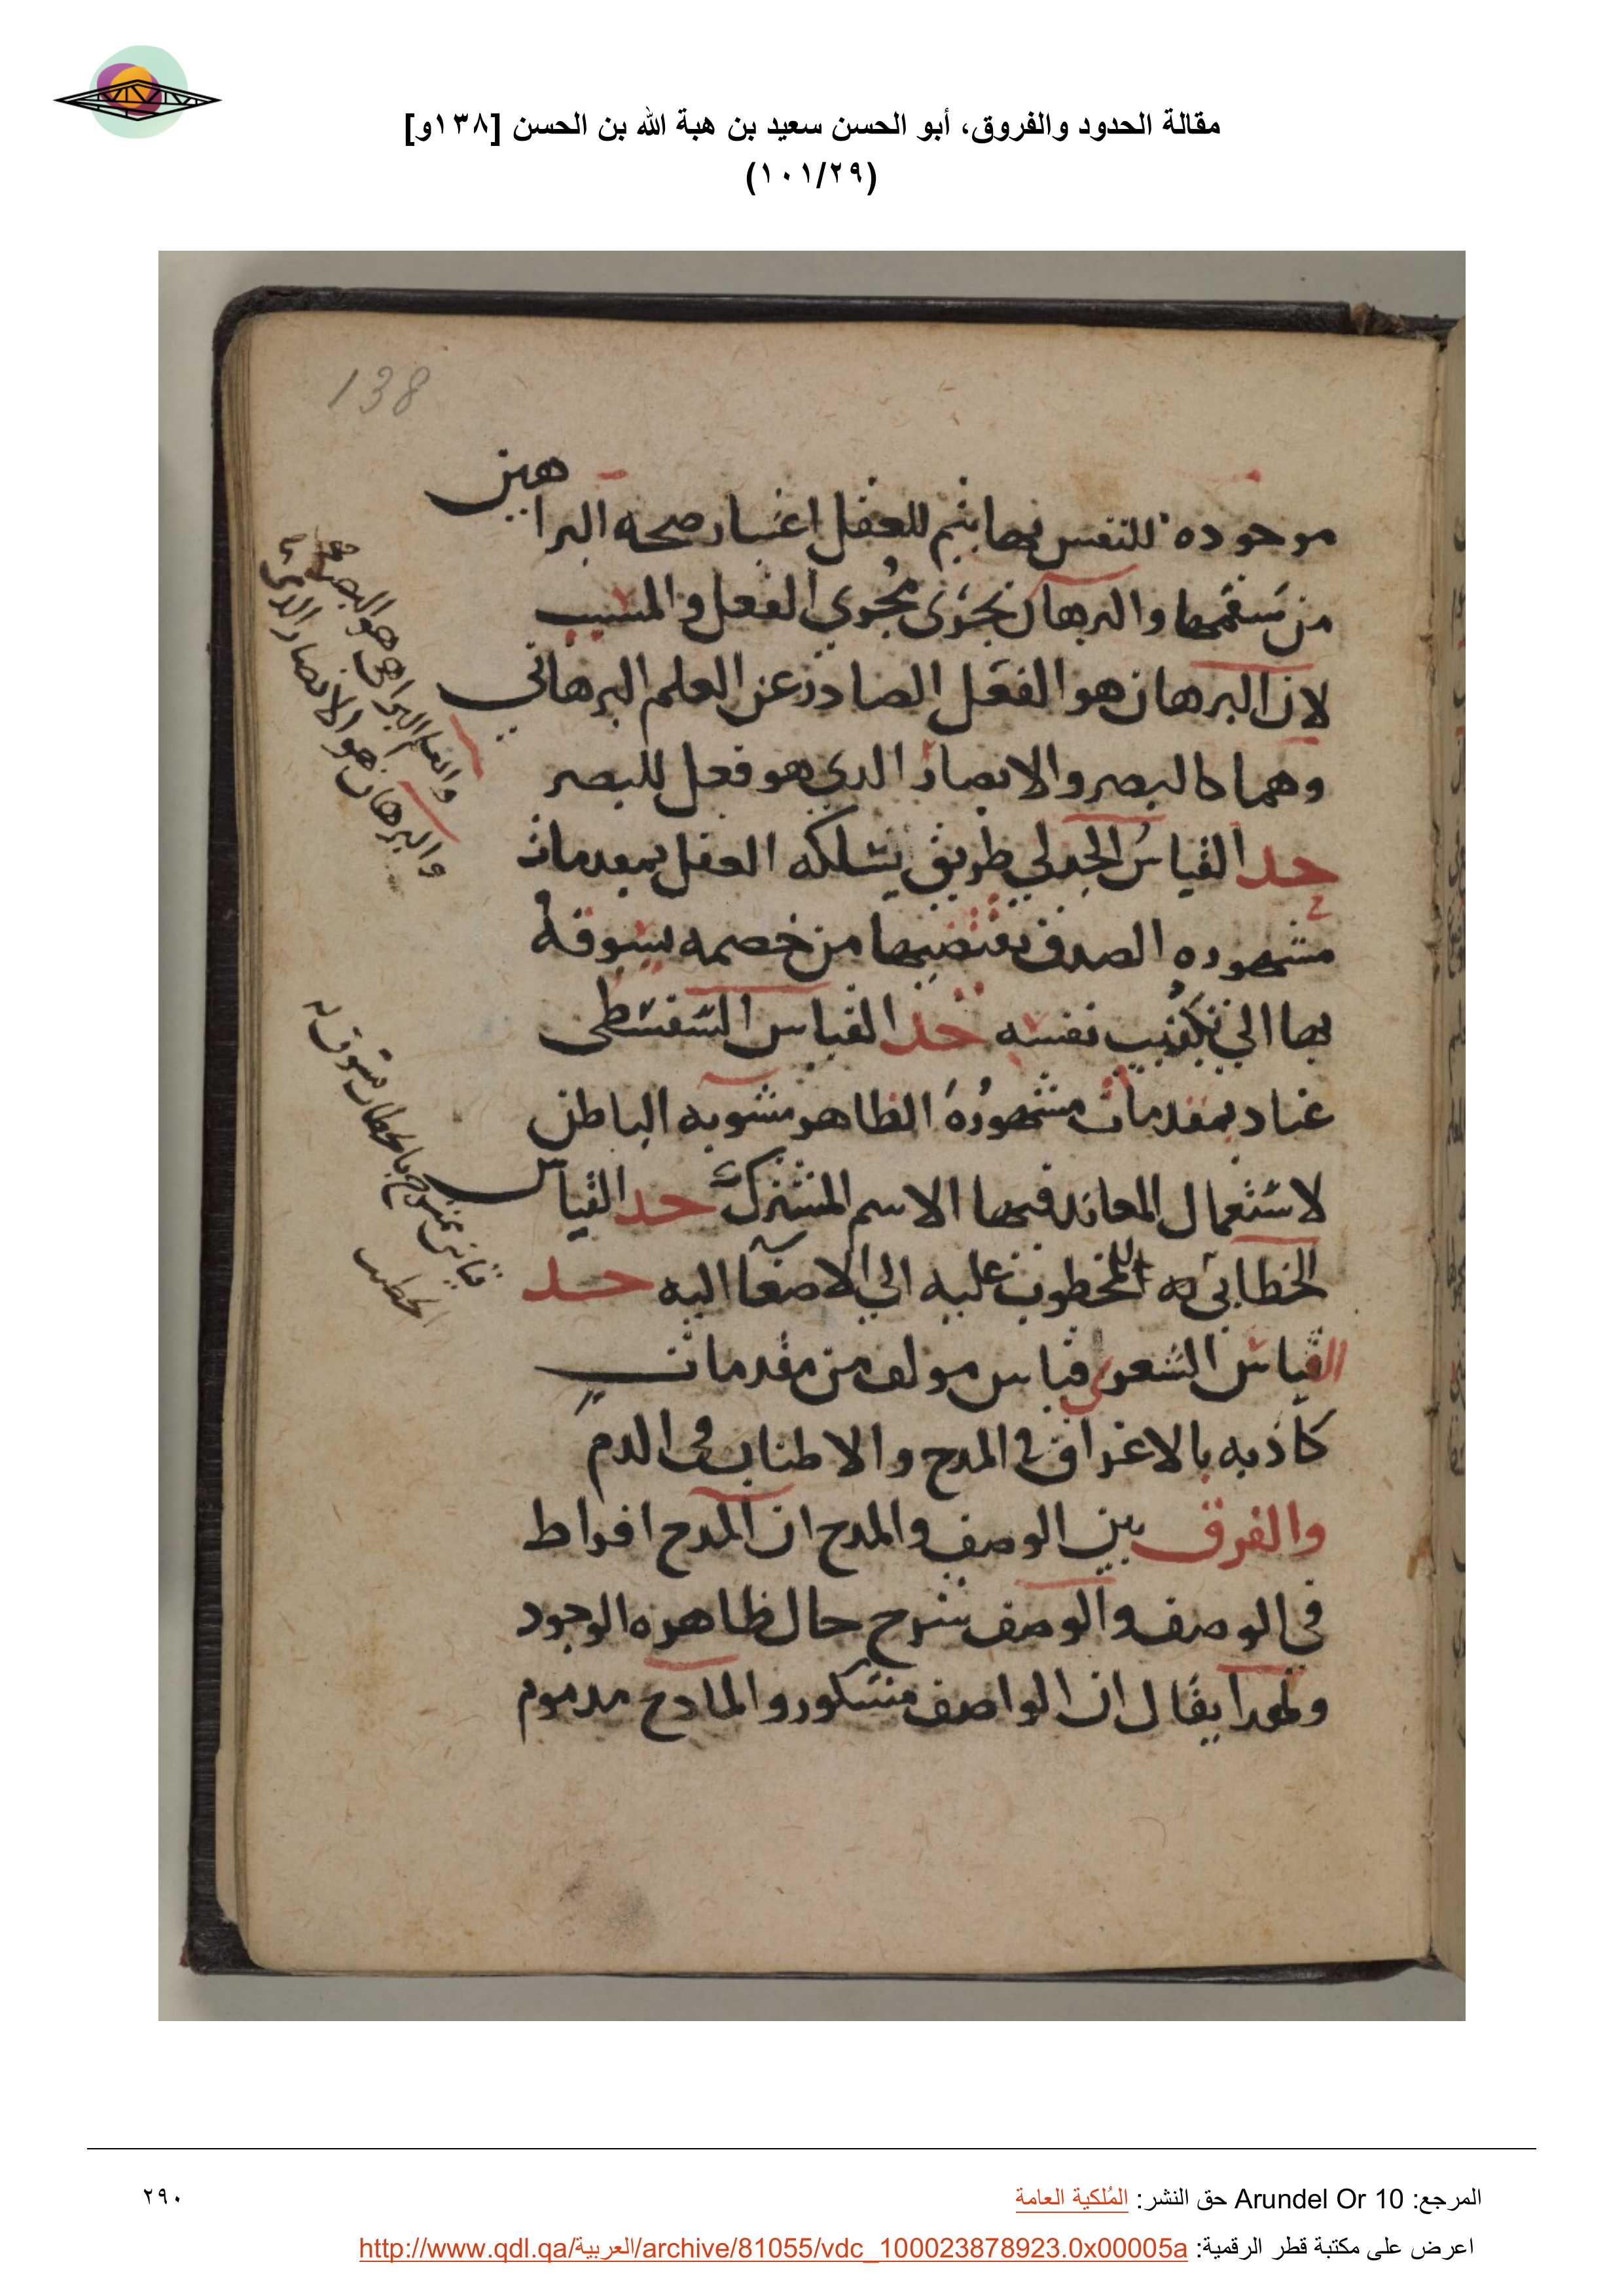 مقالة الحدود والفروق، أبو الحسن سعيد بن هبة الله بن الحسن [١٣٨و]
(١٠١/٢٩)
138
موجوده للنفس بها يتم للعقل اعتبار صحه البراهين
من سقمها والبرهان يجري مجري الفعل والمسبب
لان البرهان هو الفعل الصادر عن العلم البرهاني
وهما كالبصر والابصار الدي هو فعل للبصر
حد القياس الجدلي طريق يسلكه العقل بمقدمات
مشهوره الصدق يقتضبها من خصمه يسوقه
بها الي تكذيب نفسه حد القياس السفسطي
عناد بمقدمات مشهوره الظاهر مشوبه الباطن
لاستعمال المعاند فيها الاسم المشترك حد القياس
الخطابي المخطوب عليه الي الاصغا اليه حد
القياس الشعري قياس مولف من مقدمات
كاذبه بالاغراق في المدح والاطناب في الدم
والفرق بين الوصف والمدح ان المدح افراط
في الوصف والوصف شرح حال ظاهره الوجود
ولهدا يقال ان الواصف مشكور والمادح مدموم
والعلم البراهى هو البصر
والبرهان هو الابصار الدي
المرجع: Arundel Or 10 حق النشر: المُلكية العامة
٢٩٠
اعرض على مكتبة قطر الرقمية: http://www.qdl.qa/العربية/archive/81055/vdc_100023878923.0x00005a